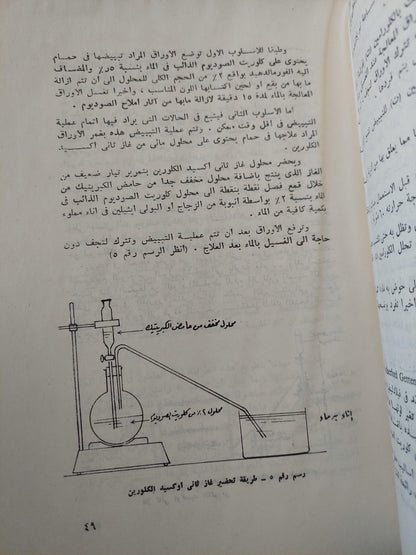 وطبقا للاسلوب الاول توضع الاوراق المراد تبييضها في حمام
يحتوى على كلوريت الصوديوم الذائب في الماء بنسبة ٢٥٪ والمضاف
اليه الفورمالدهيد بواقع ٢٪ من الحجم الكلى للمحلول الى ان تتم ازالة
ما بها من بقع او لحين اكتسابها اللون المناسب ، واخيرا تغسل الاوراق
المعالجة بالماء لمدة ١٥ دقيقة لازالة مابها من آثار املاح الصوديوم .
اما الاسلوب الثانى فيتبع في الحالات التى يراد فيها اتمام عملية
التبييض في اقل وقت ممكن ، وتتم عملية التبييض هذه بغمر الاوراق
المراد علاجها في حمام يحتوى على محلول مائى من غاز ثانى اكسيد
الكلورين .
ويحضر محلول غاز ثانى اكسيد الكلورين بتمرير تيار ضعيف من
الغاز الذى ينتج باضافة محلول مخفف جدا من حامض الكبريتيك من
خلال قمع فصل نقطة بنقطة الى محلول كلوريت الصوديوم الذائب في
الماء بنسبة ٢٪ بواسطة أنبوبة من الزجاج او البولى ايثيلين في اناء مملوء
بكمية كافية من الماء .
وترفع الاوراق بعد ان تتم عملية التبييض وتترك لتجف دون
حاجة الى الغسيل بالماء بعد العلاج . (انظر الرسم رقم ٥)
محلول مخفف من حامض الكبريتيك
محلول ٢٪ من كلوريت الصوديوم
إناء به ماء
رسم رقم ٥ – طريقة تحضير غاز ثانى اوكسيد الكلورين
٤٩